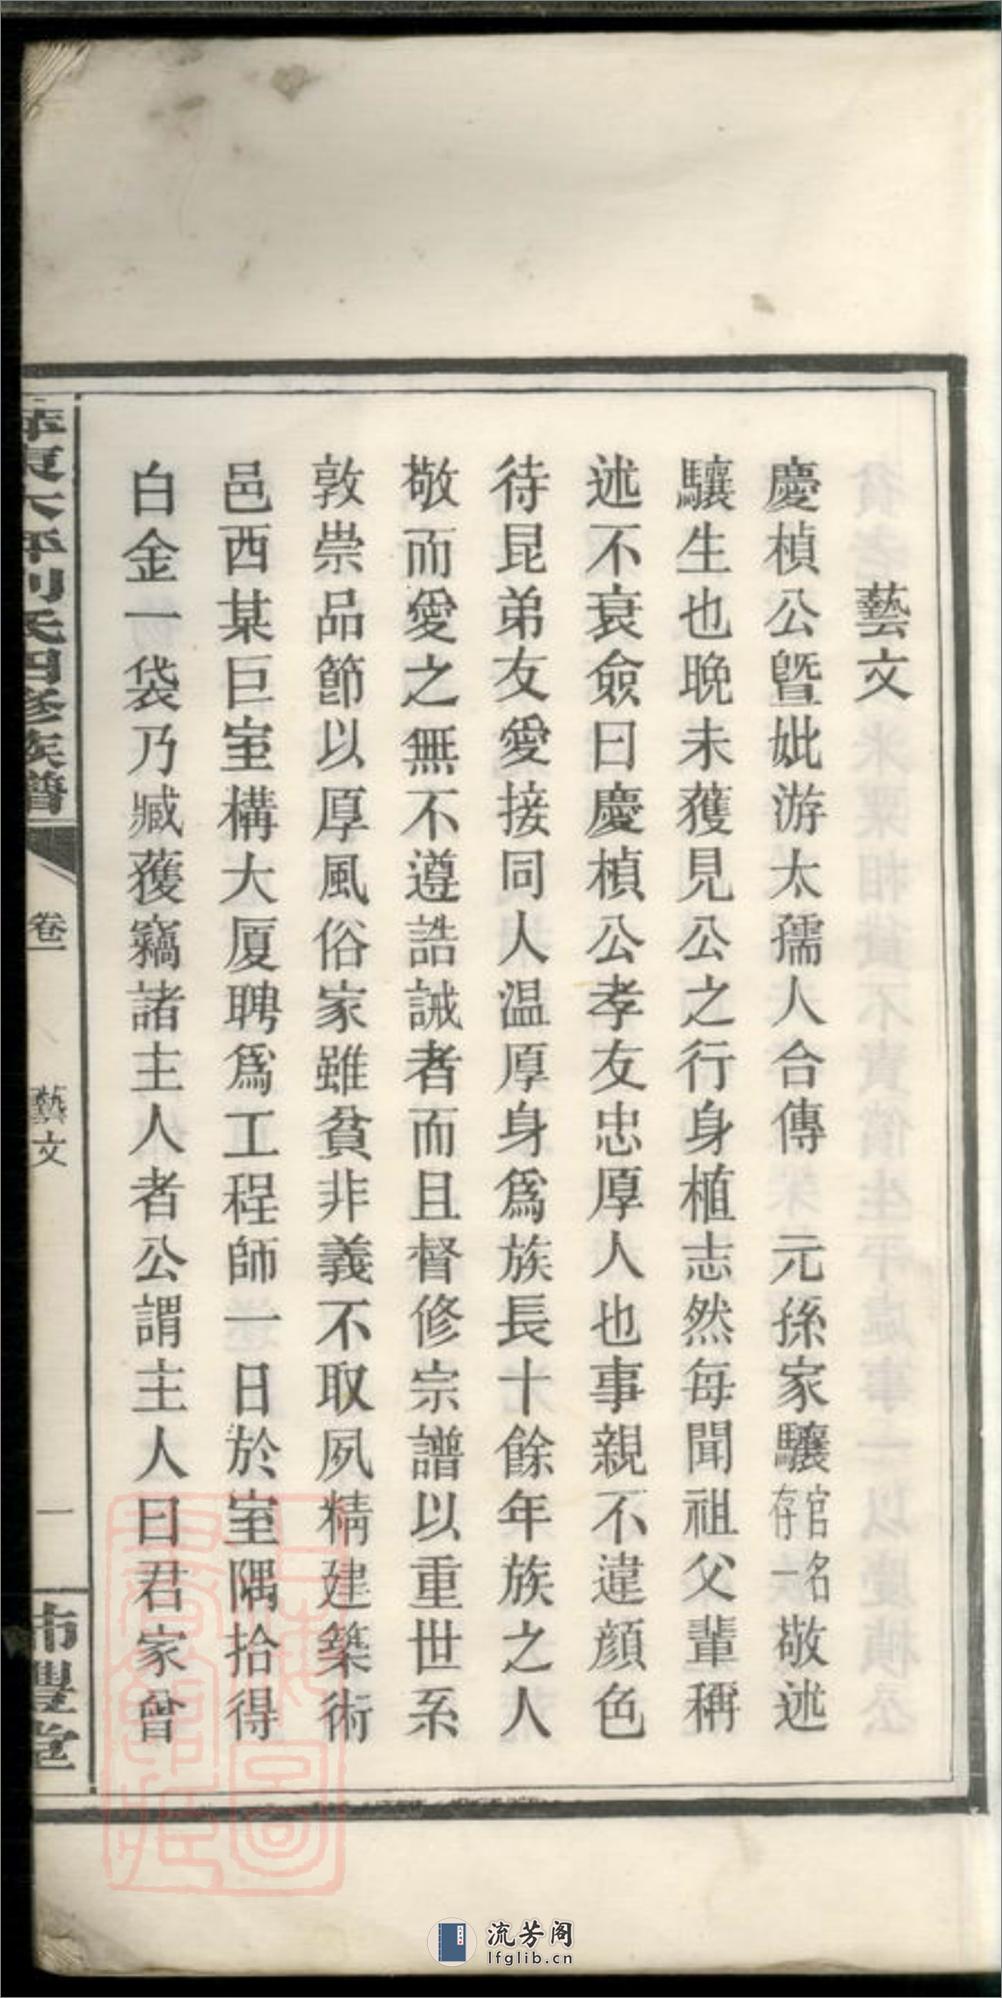 藝文
慶楨公暨妣游太孺人合傳　元孫家驤官名存一敬述
驤生也晚未獲見公之行身植志然每聞祖父輩稱
述不衰僉曰慶楨公孝友忠厚人也事親不違顏色
待昆弟友愛接同人温厚身爲族長十餘年族之人
敬而愛之無不遵誥誡者而且督修宗譜以重世系
敦崇品節以厚風俗家雖貧非義不取夙精建築術
邑西某巨室構大厦聘爲工程師一日於室隅拾得
白金一袋乃臧獲竊諸主人者公謂主人曰君家曾
大坪刘氏四修族譜
卷一
藝文
一
豐堂
流芳阁
lfglib.cn